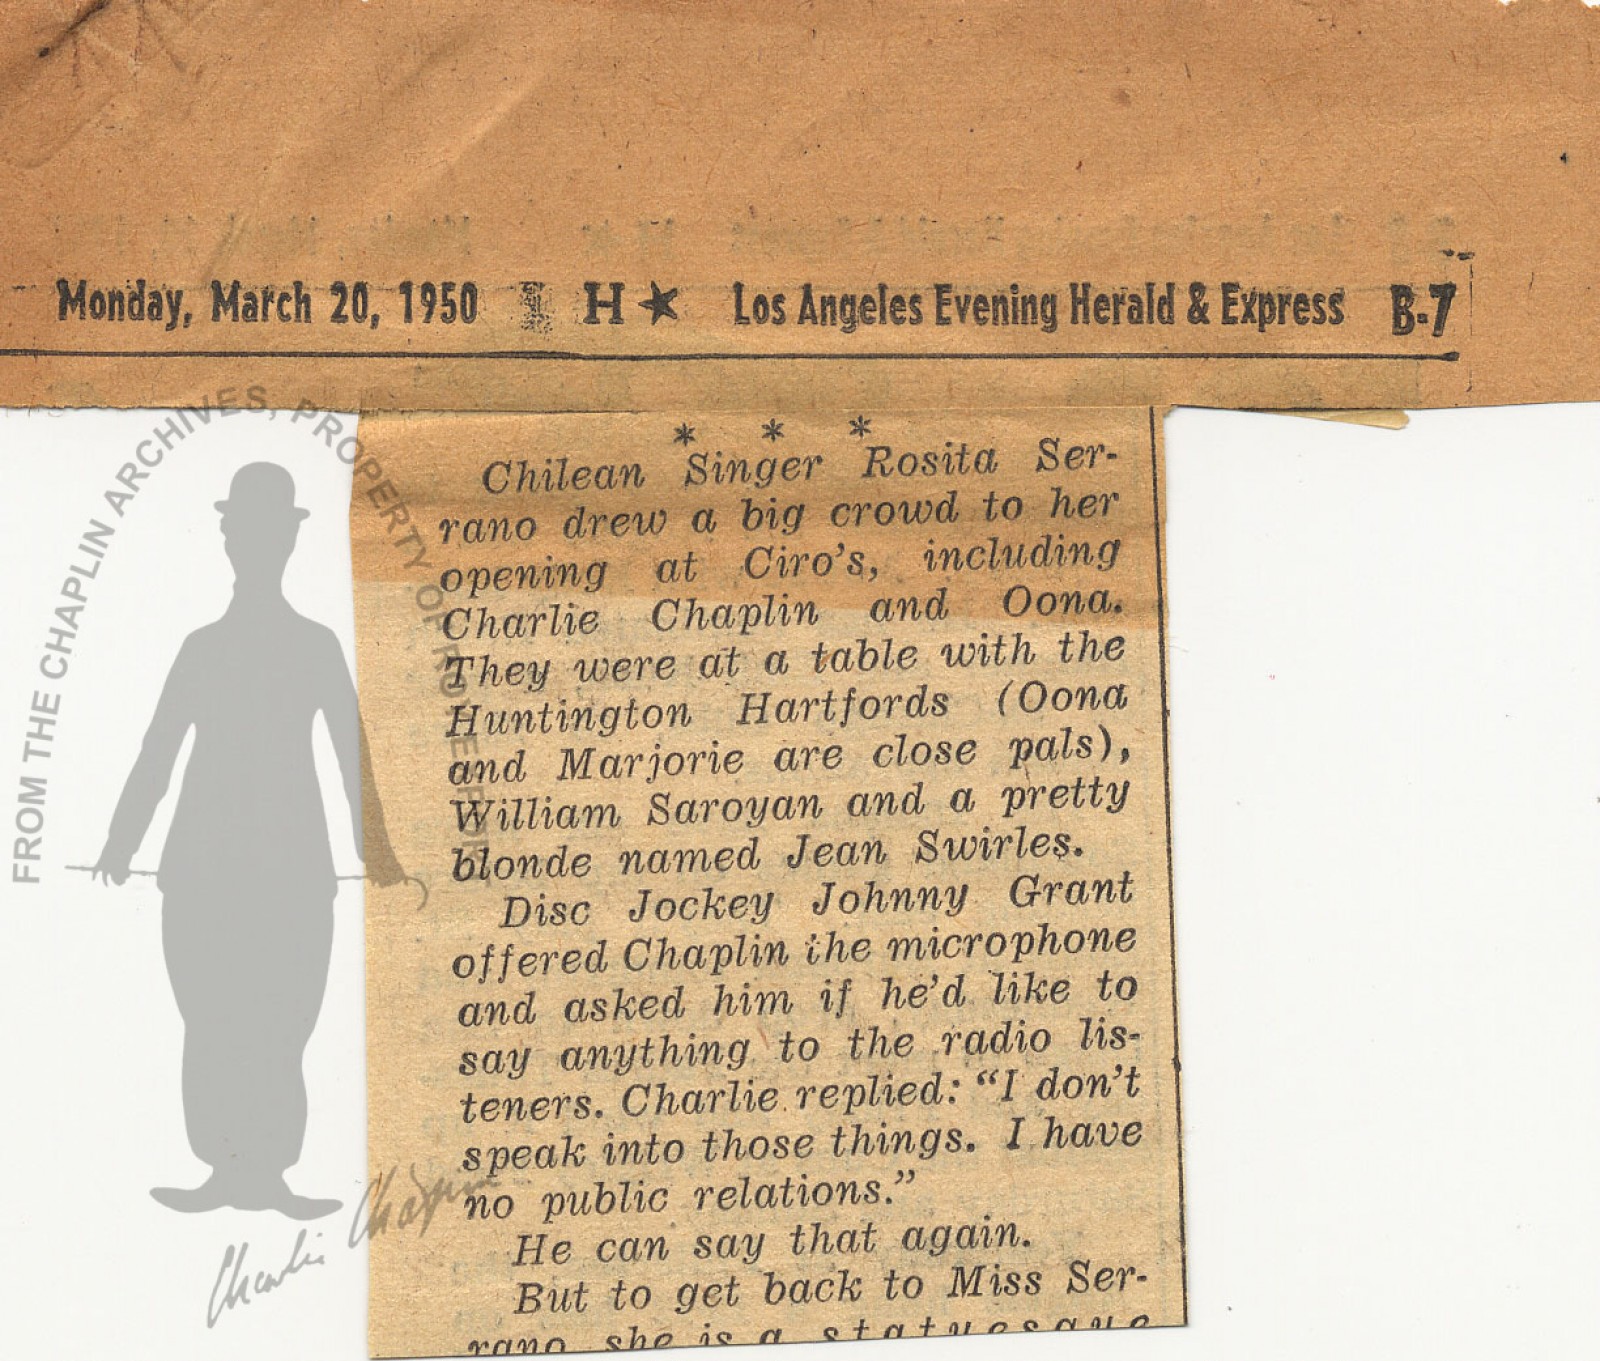 Monday, March 20, 1950 H★ Los Angeles Evening Herald & Express B-7
* * *
Chilean Singer Rosita Ser-
rano drew a big crowd to her
opening at Ciro's, including
Charlie Chaplin and Oona.
They were at a table with the
Huntington Hartfords (Oona
and Marjorie are close pals),
William Saroyan and a pretty
blonde named Jean Swirles.
Disc Jockey Johnny Grant
offered Chaplin the microphone
and asked him if he'd like to
say anything to the radio lis-
teners. Charlie replied: "I don't
speak into those things. I have
no public relations."
He can say that again.
But to get back to Miss Ser-
rano, she is a statuesque
FROM THE CHAPLIN ARCHIVES, PROPERTY OF ROY EXPORT
Charlie Chaplin